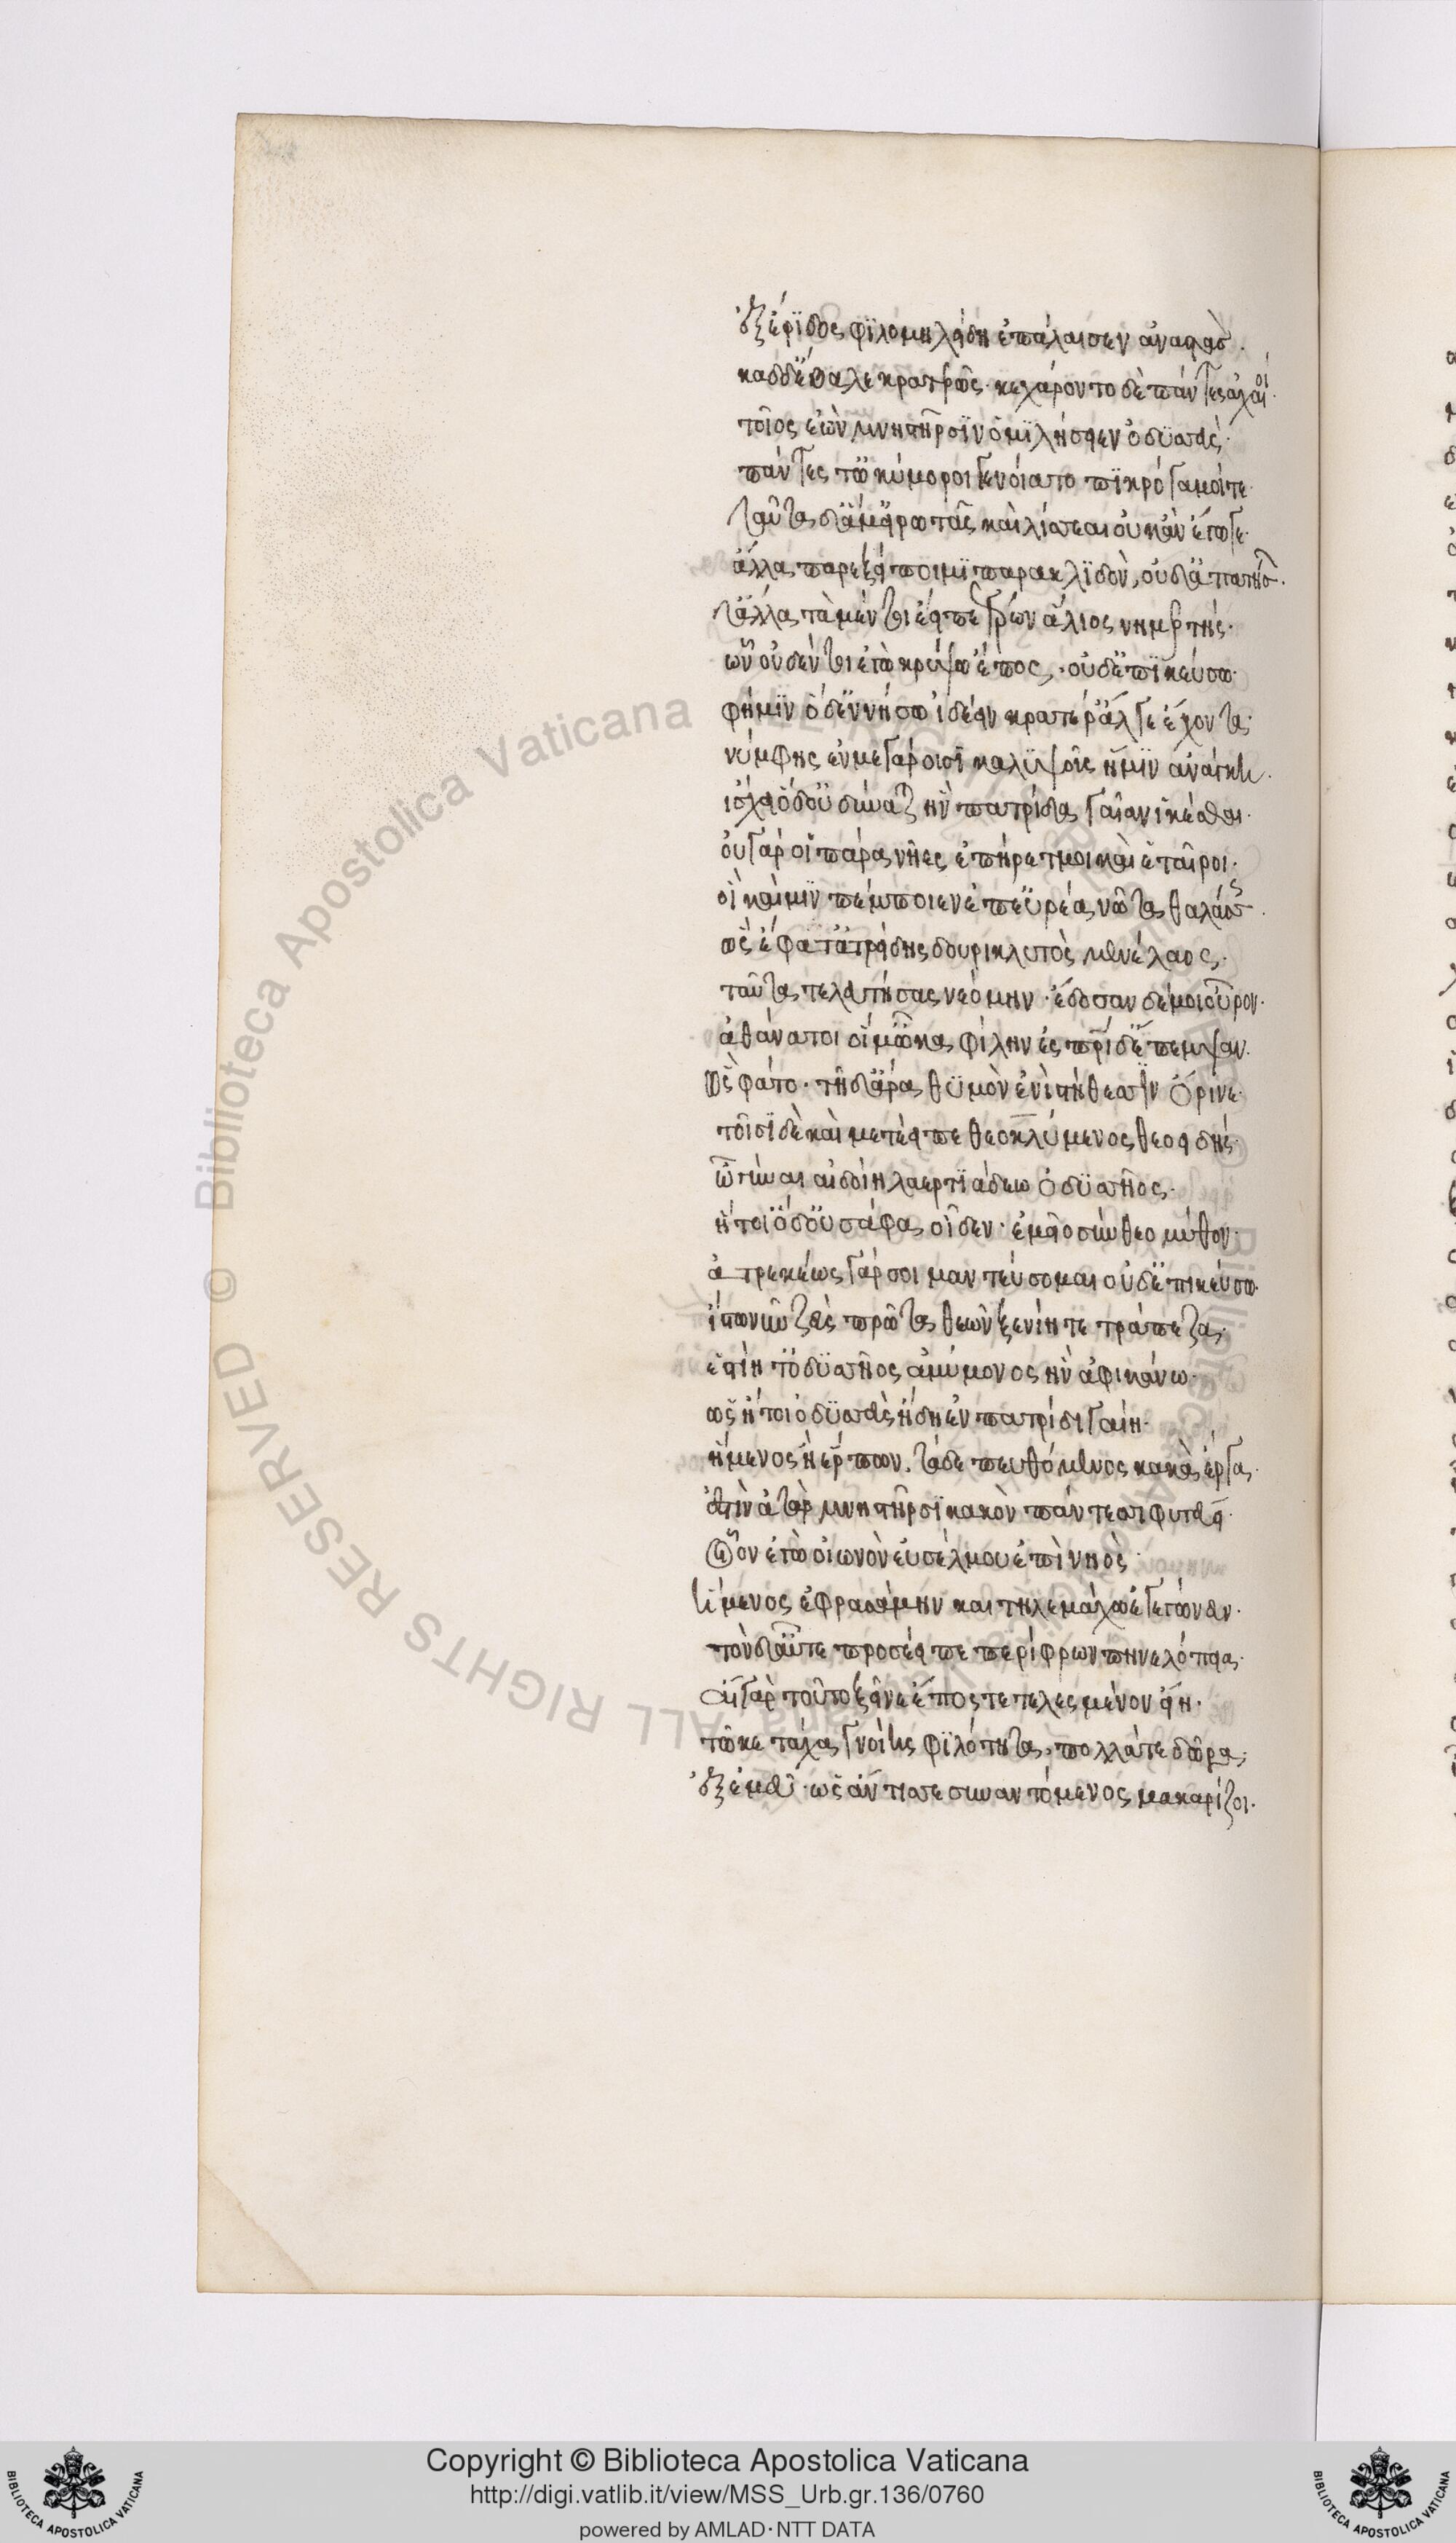 ἐξ ἔριδος φιλομηλείδη ἐπάλαισεν ἀναστάς.
καδδ' ἔβαλε κρατερῶς· κεχάροντο δὲ πάντες ἀχαιοί.
τοῖος ἐὼν μνηστῆρσιν ὁμιλήσειεν ὀδυσσεύς·
πάντες τ' ὠκύμοροι γενοίατο πικρόγαμοί τε·
ταῦτα δ' ἅ μ' εἰρωτᾶς καὶ λίσσεαι οὐκ ἂν ἔγωγε·
ἄλλα παρὲξ εἴποιμι παρακλιδὸν, οὐδ' ἀπατήσω.
ἀλλὰ τὰ μέν τοι ἔειπε γέρων ἅλιος νημερτής·
ὧν οὐδέν τοι ἐγὼ κρύψω ἔπος, οὐδ' ἐπικεύσω·
φῆ μιν ὅδ' ἐν νήσω ἰδέειν κρατέρ' ἄλγε' ἔχοντα·
νύμφης ἐν μεγάροισι καλυψοῦς ἥ μιν ἀνάγκη.
ἴσχει ὁδ' οὐ δύναται ἣν πατρίδα γαῖαν ἱκέσθαι·
οὐ γάρ οἱ πάρα νῆες ἐπήρετμοι καὶ ἑταῖροι·
οἵ καί μιν πέμποιεν ἐπ' εὐρέα νῶτα θαλάσσης.
ὣς ἔφατ' ἀτρείδης δουρικλυτὸς μενέλαος.
ταῦτα τελευτήσας νεόμην· ἔδοσαν δέ μοι οὖρον·
ἀθάνατοι οἵ μ' ὦκα φίλην ἐς πατρίδ' ἔπεμψαν.
ὣς φάτο· τῆ δ' ἄρα θυμὸν ἐνὶ στήθεσσιν ὄρινε·
τοῖσι δὲ καὶ μετέειπε θεοκλύμενος θεοειδής·
ὦ γύναι αἰδοίη λαερτιάδεω ὀδυσσῆος·
ἤτοι ὅδ' οὐ σάφα οἶδεν· ἐμεῖο σύνθεο μῦθον·
ἀτρεκέως γάρ σοι μαντεύσομαι οὐδ' ἐπικεύσω·
ἴστω νῦν ζεὺς πρῶτα θεῶν ξενίη τε τράπεζα·
ἑστίη τ' ὀδυσσῆος ἀμύμονος ἣν ἀφικάνω·
ὡς ἤτοι ὀδυσσεὺς ἤδη ἐν πατρίδι γαίη·
ἥμενος ἢ ἕρπων. τάδε πευθόμενος κακὰ ἔργα·
ἐστὶν ἀτὰρ μνηστῆρσι κακὸν πάντεσσι φυτεύει·
οἷον ἐγὼ οἰωνὸν ἐυσέλμου ἐπὶ νηὸς
ἥμενος ἐφρασάμην καὶ τηλεμάχω ἐγεγώνευν·
τὸν δ' αὖτε προσέειπε περίφρων πηνελόπεια·
αἲ γὰρ τοῦτο ξεῖνε ἔπος τετελεσμένον εἴη·
τῶ κε τάχα γνοίης φιλότητα, πολλά τε δῶρα·
ἐξ ἐμεῦ· ὡς ἄν τίς σε συναντόμενος μακαρίζοι.
Copyright © Biblioteca Apostolica Vaticana
http://digi.vatlib.it/view/MSS_Urb.gr.136/0760
powered by AMLAD·NTT DATA